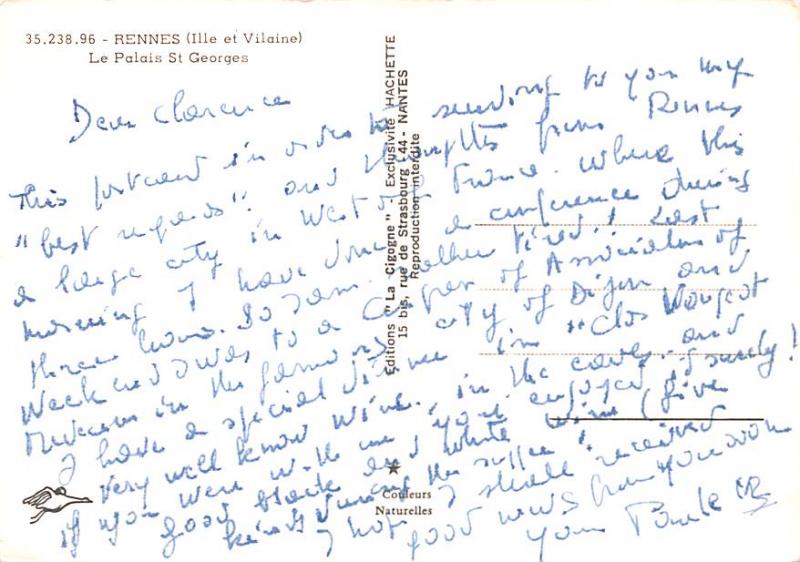 35.238.96 - RENNES (Ille et Vilaine)
Le Palais St Georges
Dear Clarence
This postcard in order to sending to you my
"best regards" and thoughts from Rennes
a large city in West of France. Where this
morning I have done a conference during
three hours. So I am rather tired! Last
Week end I was to a Congres of Association of
Museum in the famous city of Dijon and
I have a special dinner in "Clos Vougeot
very well know wine, in the caves and
if you were with me you enjoyed surely!
good black and white wine (five
kinds during the supper!
I hope I shall received
good news from you soon
your Paule
Editions "La Cigogne" . Exclusivité HACHETTE
15 bis, rue de Strasbourg 44 - NANTES
Reproduction interdite
Couleurs
Naturelles